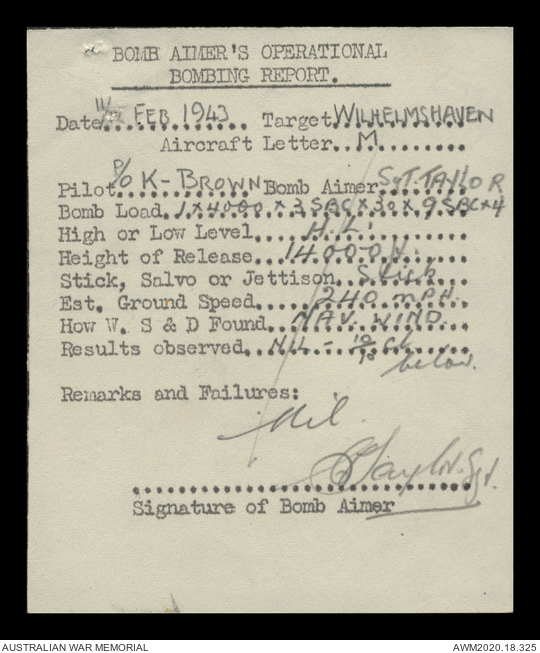 BOMB AIMER'S OPERATIONAL
BOMBING REPORT.
Date 11/ FEB. 1943. Target WILHELMSHAVEN
Aircraft Letter M
Pilot P/O K-BROWN Bomb Aimer SGT. TAYLOR
Bomb Load 1 x 4000 x 3 SBC x 30 x 9 SBC x 4
High or Low Level H.L.
Height of Release 14000
Stick, Salvo or Jettison Stick
Est. Ground Speed 240 MPH.
How W. S & D Found NAV. WIND
Results observed NIL - 10/10 below.
Remarks and Failures:
Nil.
Taylor. Sgt.
Signature of Bomb Aimer
AUSTRALIAN WAR MEMORIAL
AWM2020.18.325